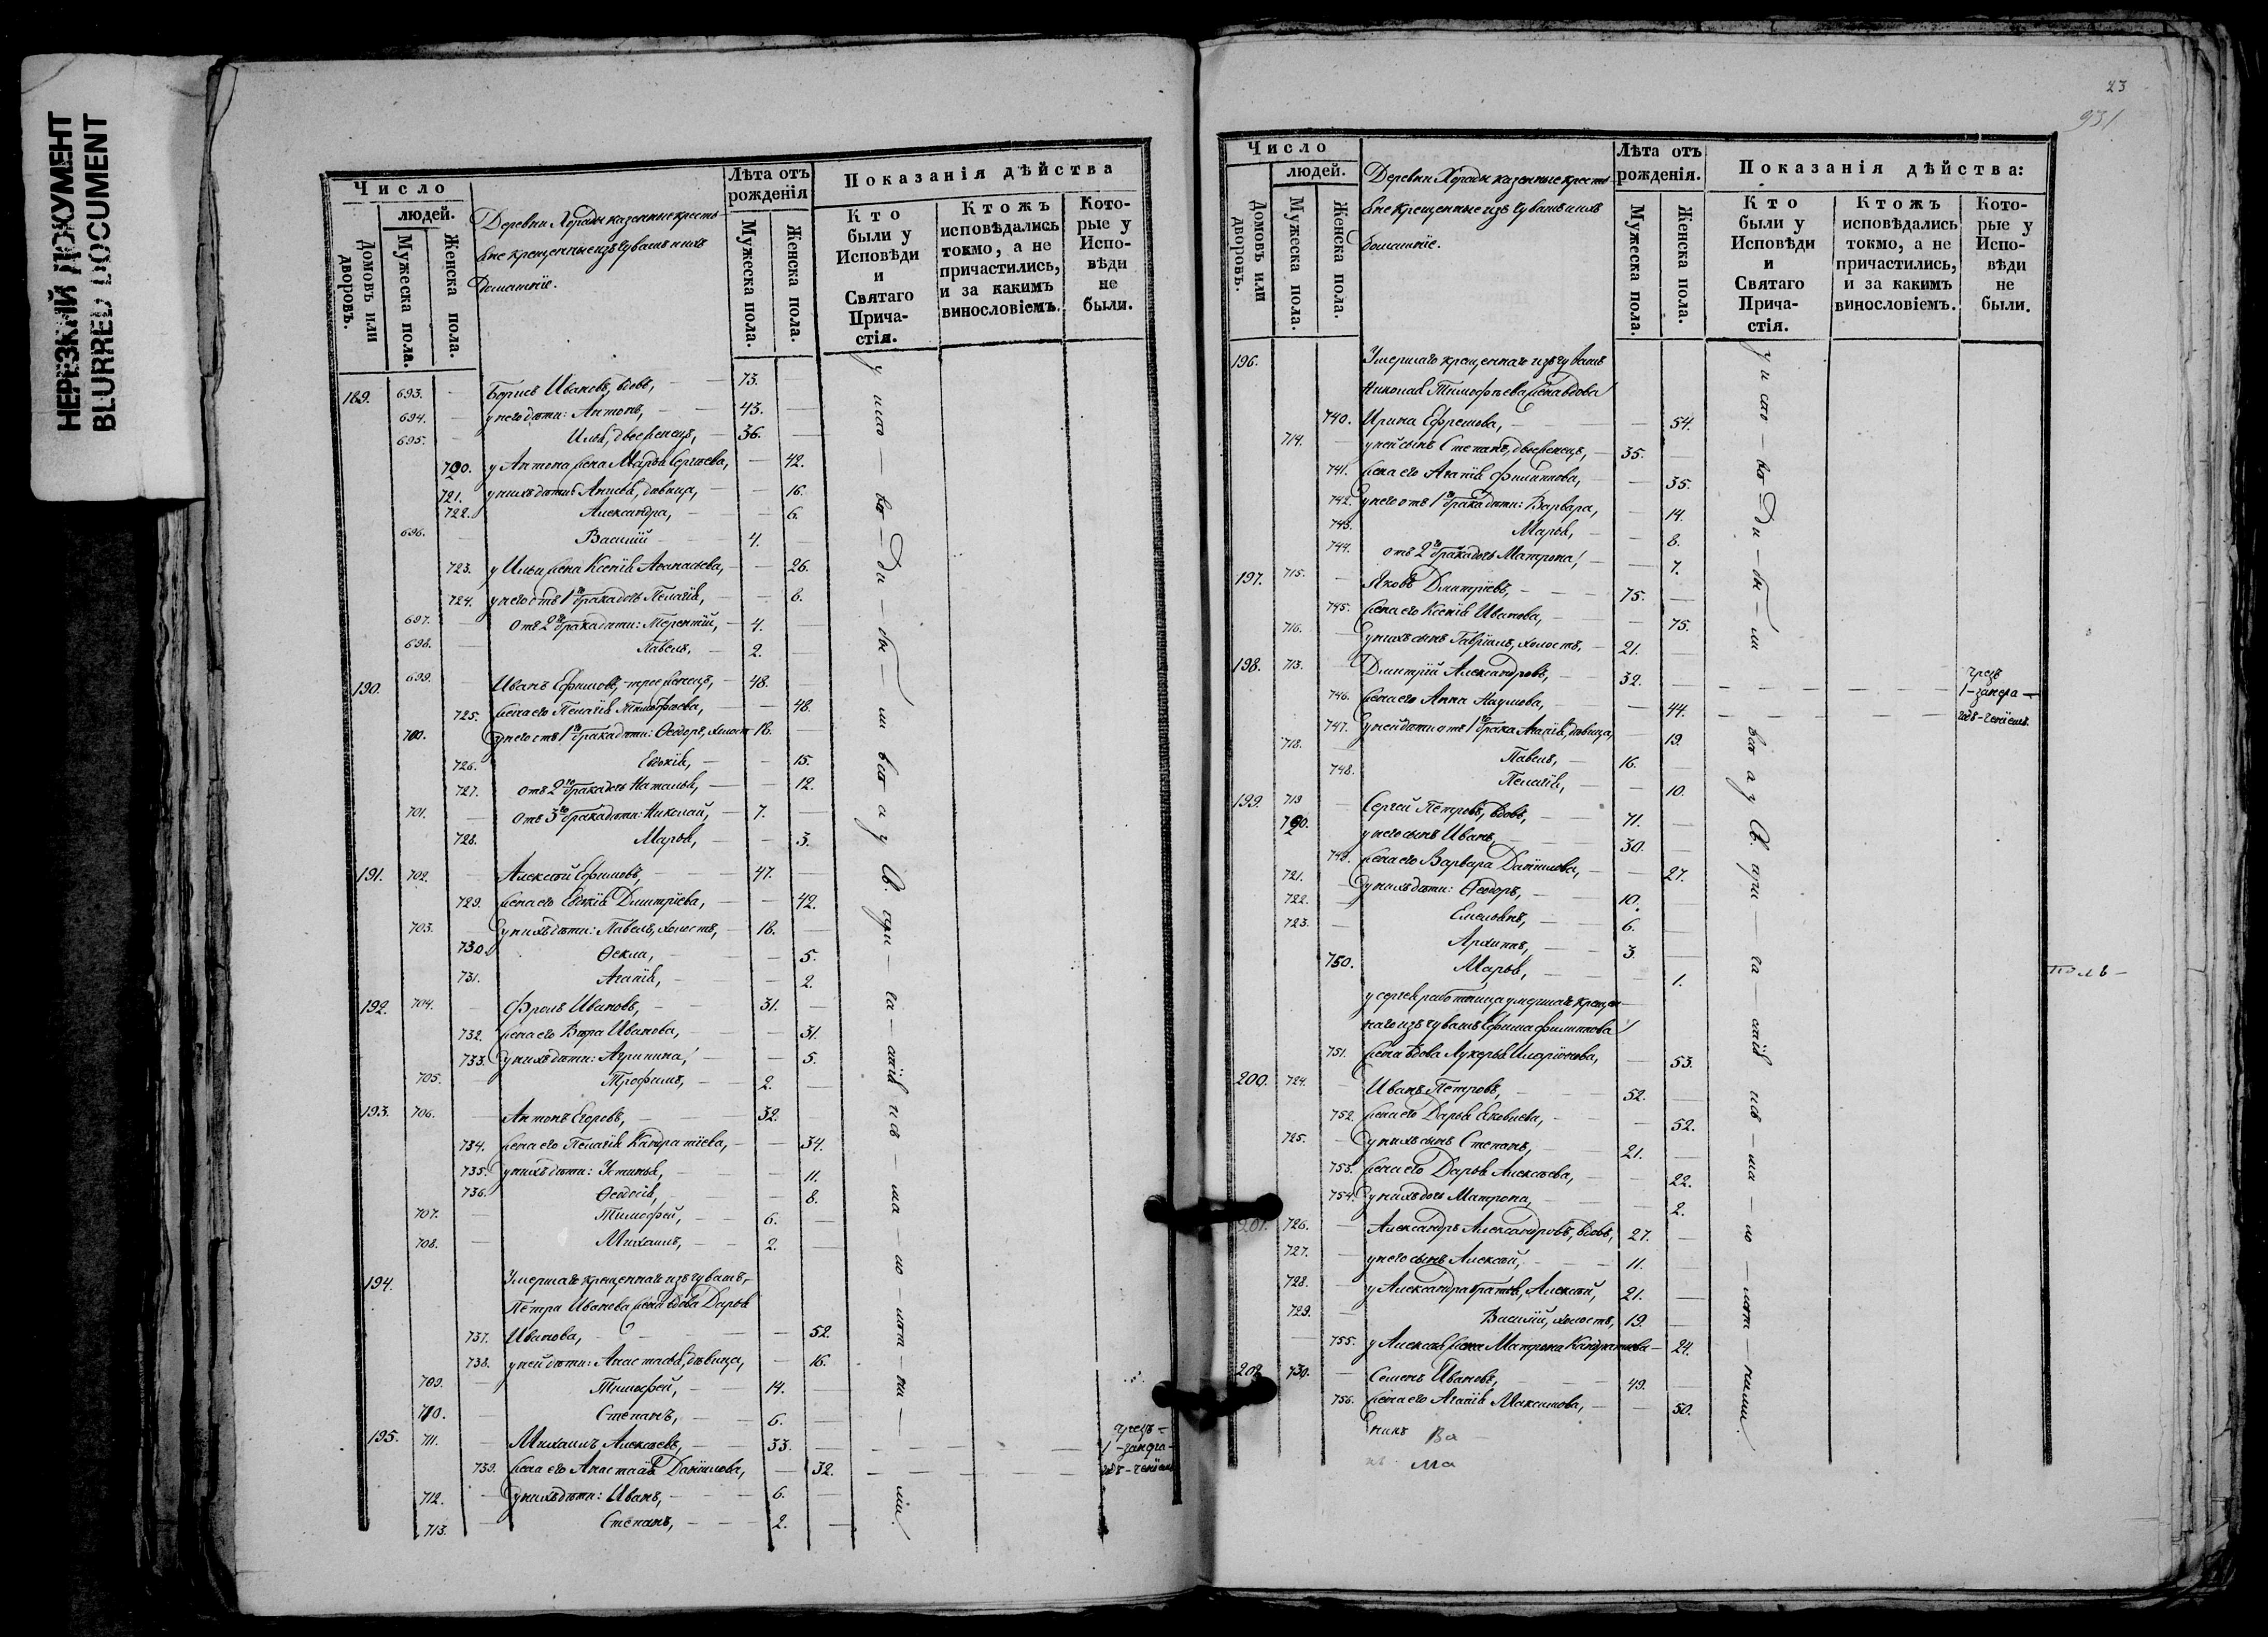 НЕРЕЗКИЙ ДОКУМЕНТ
BLURRED DOCUMENT
Число
людей.
Домовъ или дворовъ.
Мужеска пола.
Женска пола.
Деревни Хорады казенные кресть
яне крещенные изъ чувашъ и ихъ
домашніе.
Лѣта отъ рожденія
Мужеска пола.
Женска пола.
Показанія дѣйства
Кто были у Исповѣди и Святаго Причастія.
Ктожъ исповѣдались токмо, а не причастились, и за какимъ винословіемъ.
Которые у Исповѣди не были.
189. 693. Борисъ Ивановъ, вдовъ, 73.
694. у него дѣти: Антонъ, 43.
695. Илья, двоеженецъ, 36.
720. у Антона жена Марья Сергѣева, 42.
721. у нихъ дѣти: девица, 16.
722. Александра, 6.
696. Василій 4.
723. у Ильи жена Ксенія Аѳанасьева, 26.
724. у него отъ 1го брака дочь Пелагія, 8.
697. отъ 2го брака дѣти: Терентій, 4.
698. Павелъ, 2.
190. 699. Иванъ Ефимовъ, троеженецъ, 48.
725. жена его Пелагія Тимофѣева, 48.
700. у него отъ 1го брака дѣти: Ѳеодоръ, холост 18.
726. Евдокія, 15.
727. отъ 2го брака дочь Наталья, 12.
701. отъ 3го брака дѣти: Николай, 7.
728. Марья, 3.
191. 702. Алексѣй Ефимовъ, 47.
729. жена его Евдокія Дмитріева, 42.
703. у нихъ дѣти: Павелъ, холостъ, 18.
730. Ѳекла, 5.
731. Агапія, 2.
192. 704. Фролъ Ивановъ, 31.
732. жена его Вѣра Иванова, 31.
733. у нихъ дѣти: Агрипина, 5.
705. Трофимъ, 2.
193. 706. Антонъ Егоровъ, 32.
734. жена его Пелагія Кандратіева, 34.
735. у нихъ дѣти: Устинья, 11.
736. Ѳеодосія, 8.
707. Тимофей, 6.
708. Михаилъ, 2.
194. Умершаго крещеннаго изъ чувашъ
Петра Иванова жена вдова Дарья
737. Иванова, 52.
738. у ней дѣти: Анастасья, девица, 16.
709. Тимофей, 14.
710. Степанъ, 6.
195. 711. Михаилъ Алексѣевъ, 33.
739. жена его Анастасія Даниилова, 32.
712. у нихъ дѣти: Иванъ, 6.
713. Степанъ, 2.
чрезъ
1 - запера -
годъ - теніемъ
23
931
Число
людей.
Домовъ или дворовъ.
Мужеска пола.
Женска пола.
Деревни Хорады казенные кресть
яне крещенные изъ чувашъ и ихъ
домашніе.
Лѣта отъ рожденія.
Мужеска пола.
Женска пола.
Показанія дѣйства:
Кто были у Исповѣди и Святаго Причастія.
Ктожъ исповѣдались токмо, а не причастились, и за какимъ винословіемъ.
Которые у Исповѣди не были.
196. Умершаго крещеннаго изъ чувашъ
Николая Тимофѣева жена вдова
740. Ирина Ефремова, 54.
714. у ней сынъ Степанъ, двоеженецъ, 35.
741. жена его Агапія Филиппова, 35.
742. у него отъ 1го брака дѣти: Варвара, 14.
743. Марья, 8.
744. отъ 2го брака дочь Матрона, 7.
197. 715. Яковъ Дмитріевъ, 75.
745. жена его Ксенія Иванова, 75.
716. у нихъ сынъ Гавріилъ, холостъ, 21.
198. 713. Дмитрій Александровъ, 32.
746. жена его Анна Наумова, 44.
747. у ней дѣти отъ 1го брака Агапія, девица, 19.
718. Павелъ, 16.
748. Пелагія, 10.
чрезъ
1 - запера -
годъ - теніемъ
199. 719 Сергей Петровъ, вдовъ, 71.
720. у него сынъ Иванъ, 30.
749. жена его Варвара Даниилова, 27.
721. у нихъ дѣти: Ѳеодоръ, 10.
722. Емельянъ, 6.
723. Архипъ, 3.
750. Марья, 1.
у Сергея работница умершаго крещен
наго изъ чувашъ Ефима Филиппова
751. жена вдова Лукерья Иларіонова, 53.
200. 724. Иванъ Петровъ, 52.
752. жена его Дарья Яковлева, 52.
725. у нихъ сынъ Степанъ, 21.
753. жена его Дарья Алексѣева, 22.
754. у нихъ дочь Матрона, 2.
201. 726. Александръ Александровъ, вдовъ, 27.
727. у него сынъ Алексѣй, 11.
728. у Александра братья, Алексѣй, 21.
729. Василій, холостъ, 19.
755. у Алексѣя жена Матрона Кандратьева 24.
202 730. Семенъ Ивановъ, 49.
756. жена его Агапія Максимова, 50.